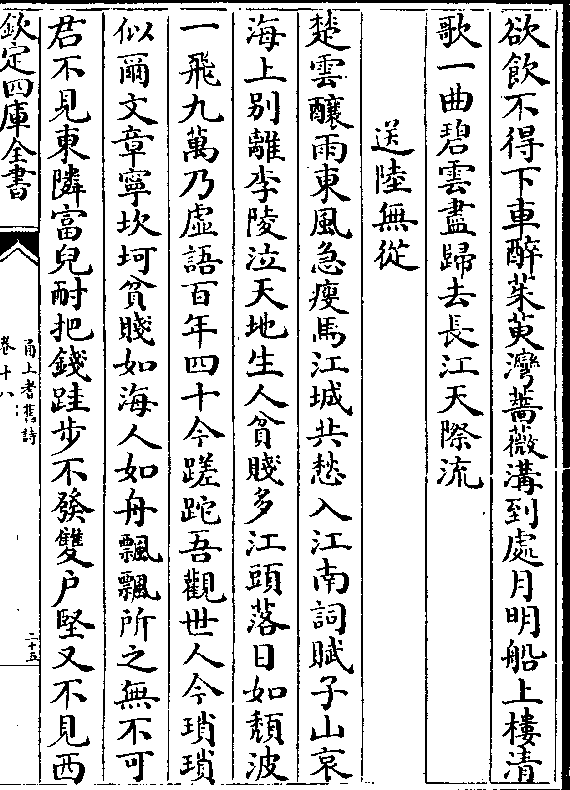 欲飲不得下車醉茱萸灣薔薇溝到處月明船上樓清
歌一曲碧雲盡歸去長江天際流
送陸無從
楚雲釀雨東風急瘦馬江城共愁入江南詞賦子山哀
海上別離李陵泣天地生人貧賤多江頭落日如頹波
一飛九萬乃虛語百年四十今蹉跎吾觀世人今瑣瑣
似爾文章寧坎坷貧賤如海人如舟飄飄所之無不可
君不見東隣富兒耐把錢跬步不發雙户堅又不見西
欽定四庫全書
甬上耆舊詩
卷十八
二十五